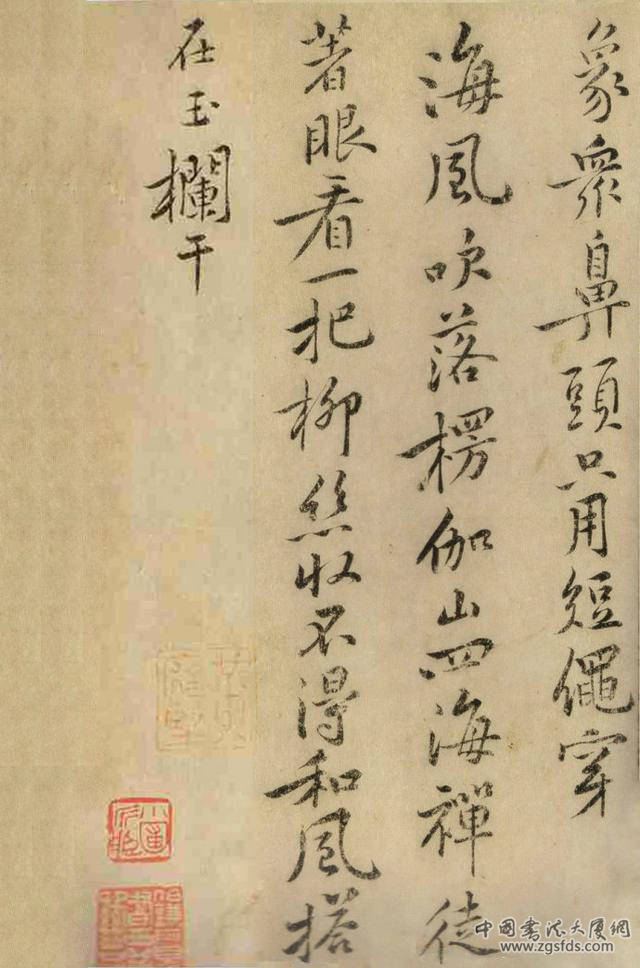 象衆鼻頭只用短繩穿
海風吹落楞伽山四海禪徒
著眼看一把柳絲收不得和風搭
在玉欄干
中国书法大厦网
www.zgsfds.com